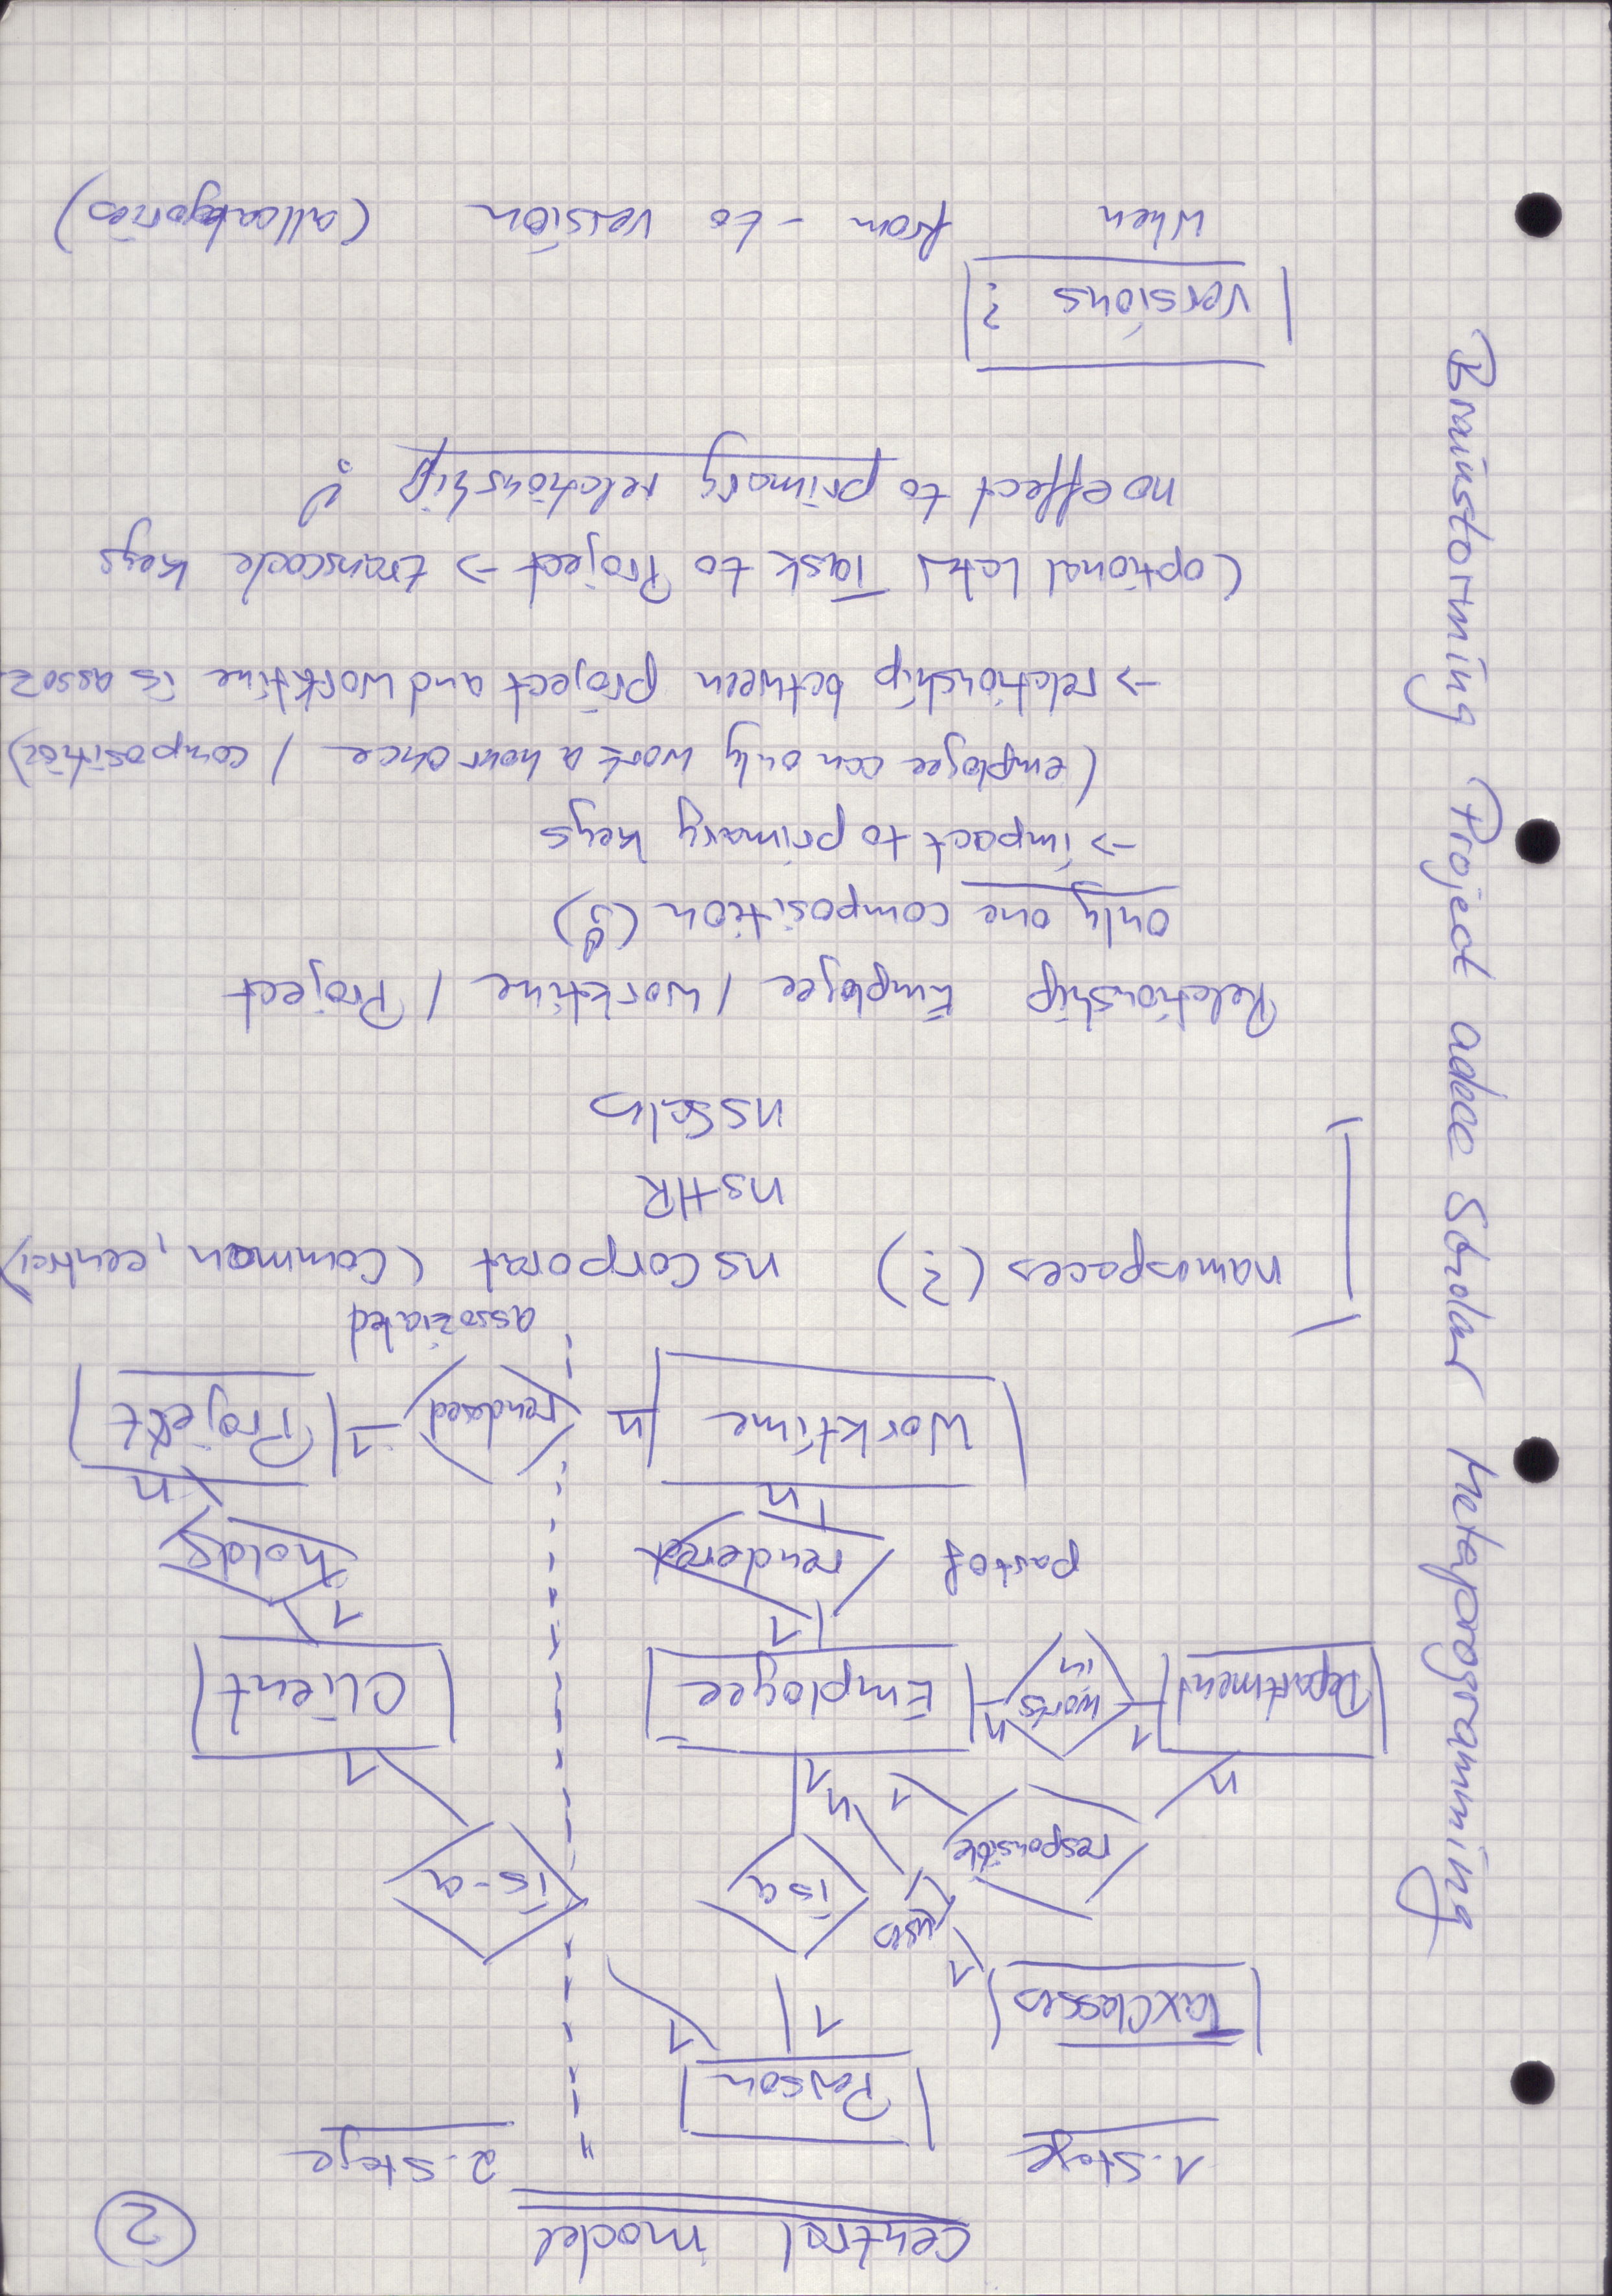 central model
2
1. Stage
2. Stage
Person
TaxClasses
1
1
1
uses
is a
is-a
responsible
n
1
n
1
1
Department
1
works
in
n
Employee
Client
1
1
part of
rendered
holds
n
n
Worktime
n
rendered
1
Projekt
assoziated
namespaces (?)
nsCorporat (Common, central)
nsHR
nsSales
Relationship Employee / Worktime / Project
only one composition (!)
-> impact to primary keys
(employee can only work a hour once / composition)
-> relationship between project and worktime is assoz.
(optional later Task to Project -> transcode keys
no effect to primary relationship !
versions ?
when from - to version (all categories)
Brainstorming Project adece Scholar Metaprogramming